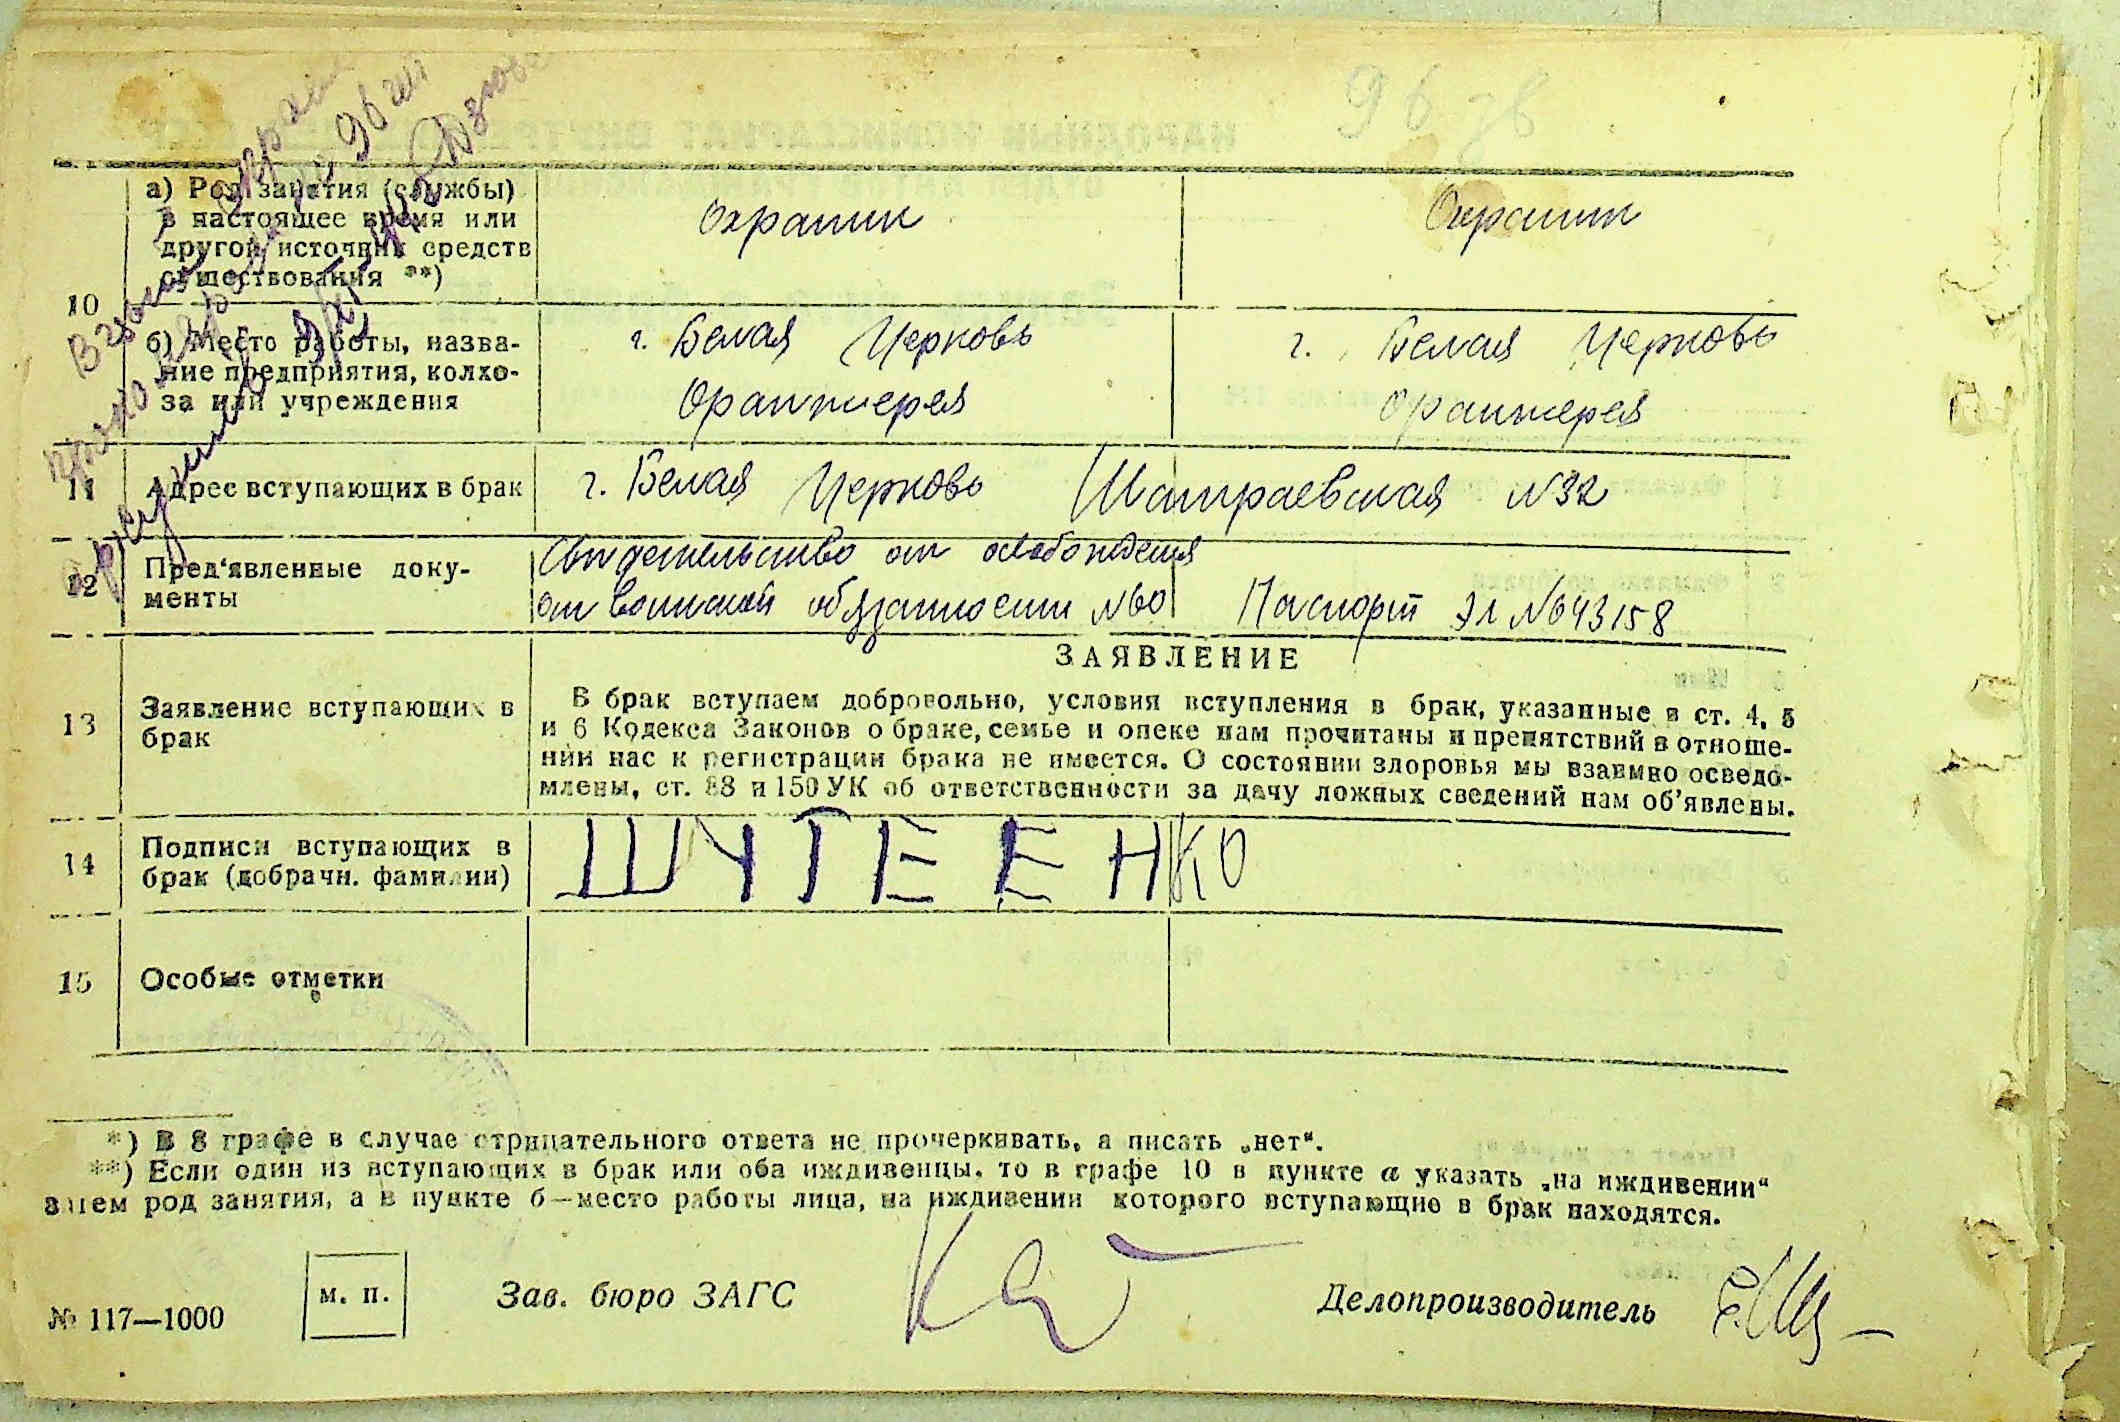 96
10
а) Род занятия (службы)
в настоящее время или
другой источник средств
существования **)
Охранник
Охранник
б) Место работы, назва-
ние предприятия, колхо-
за или учреждения
г. Белая Церковь
Оранжерея
г. Белая Церковь
Оранжерея
11 Адрес вступающих в брак г. Белая Церковь №32
12 Пред'явленные доку-
менты
Свидетельство от освобождения
от воинской обязанности №60
Паспорт ЭЛ №643158
13 Заявление вступающих в
брак
ЗАЯВЛЕНИЕ
В брак вступаем добровольно, условия вступления в брак, указанные в ст. 4, 5
и 6 Кодекса Законов о браке, семье и опеке нам прочитаны и препятствий в отноше-
нии нас к регистрации брака не имеется. О состоянии здоровья мы взаимно осведо-
млены, ст. 88 и 150 УК об ответственности за дачу ложных сведений нам об'явлены.
14 Подписи вступающих в
брак (добрачн. фамилии)
15 Особые отметки
*) В 8 графе в случае отрицательного ответа не прочеркивать, а писать „нет“.
**) Если один из вступающих в брак или оба иждивенцы, то в графе 10 в пункте а указать „на иждивении“
затем род занятия, а в пункте б—место работы лица, на иждивении которого вступающие в брак находятся.
№ 117—1000
м. п.
Зав. бюро ЗАГС
Делопроизводитель